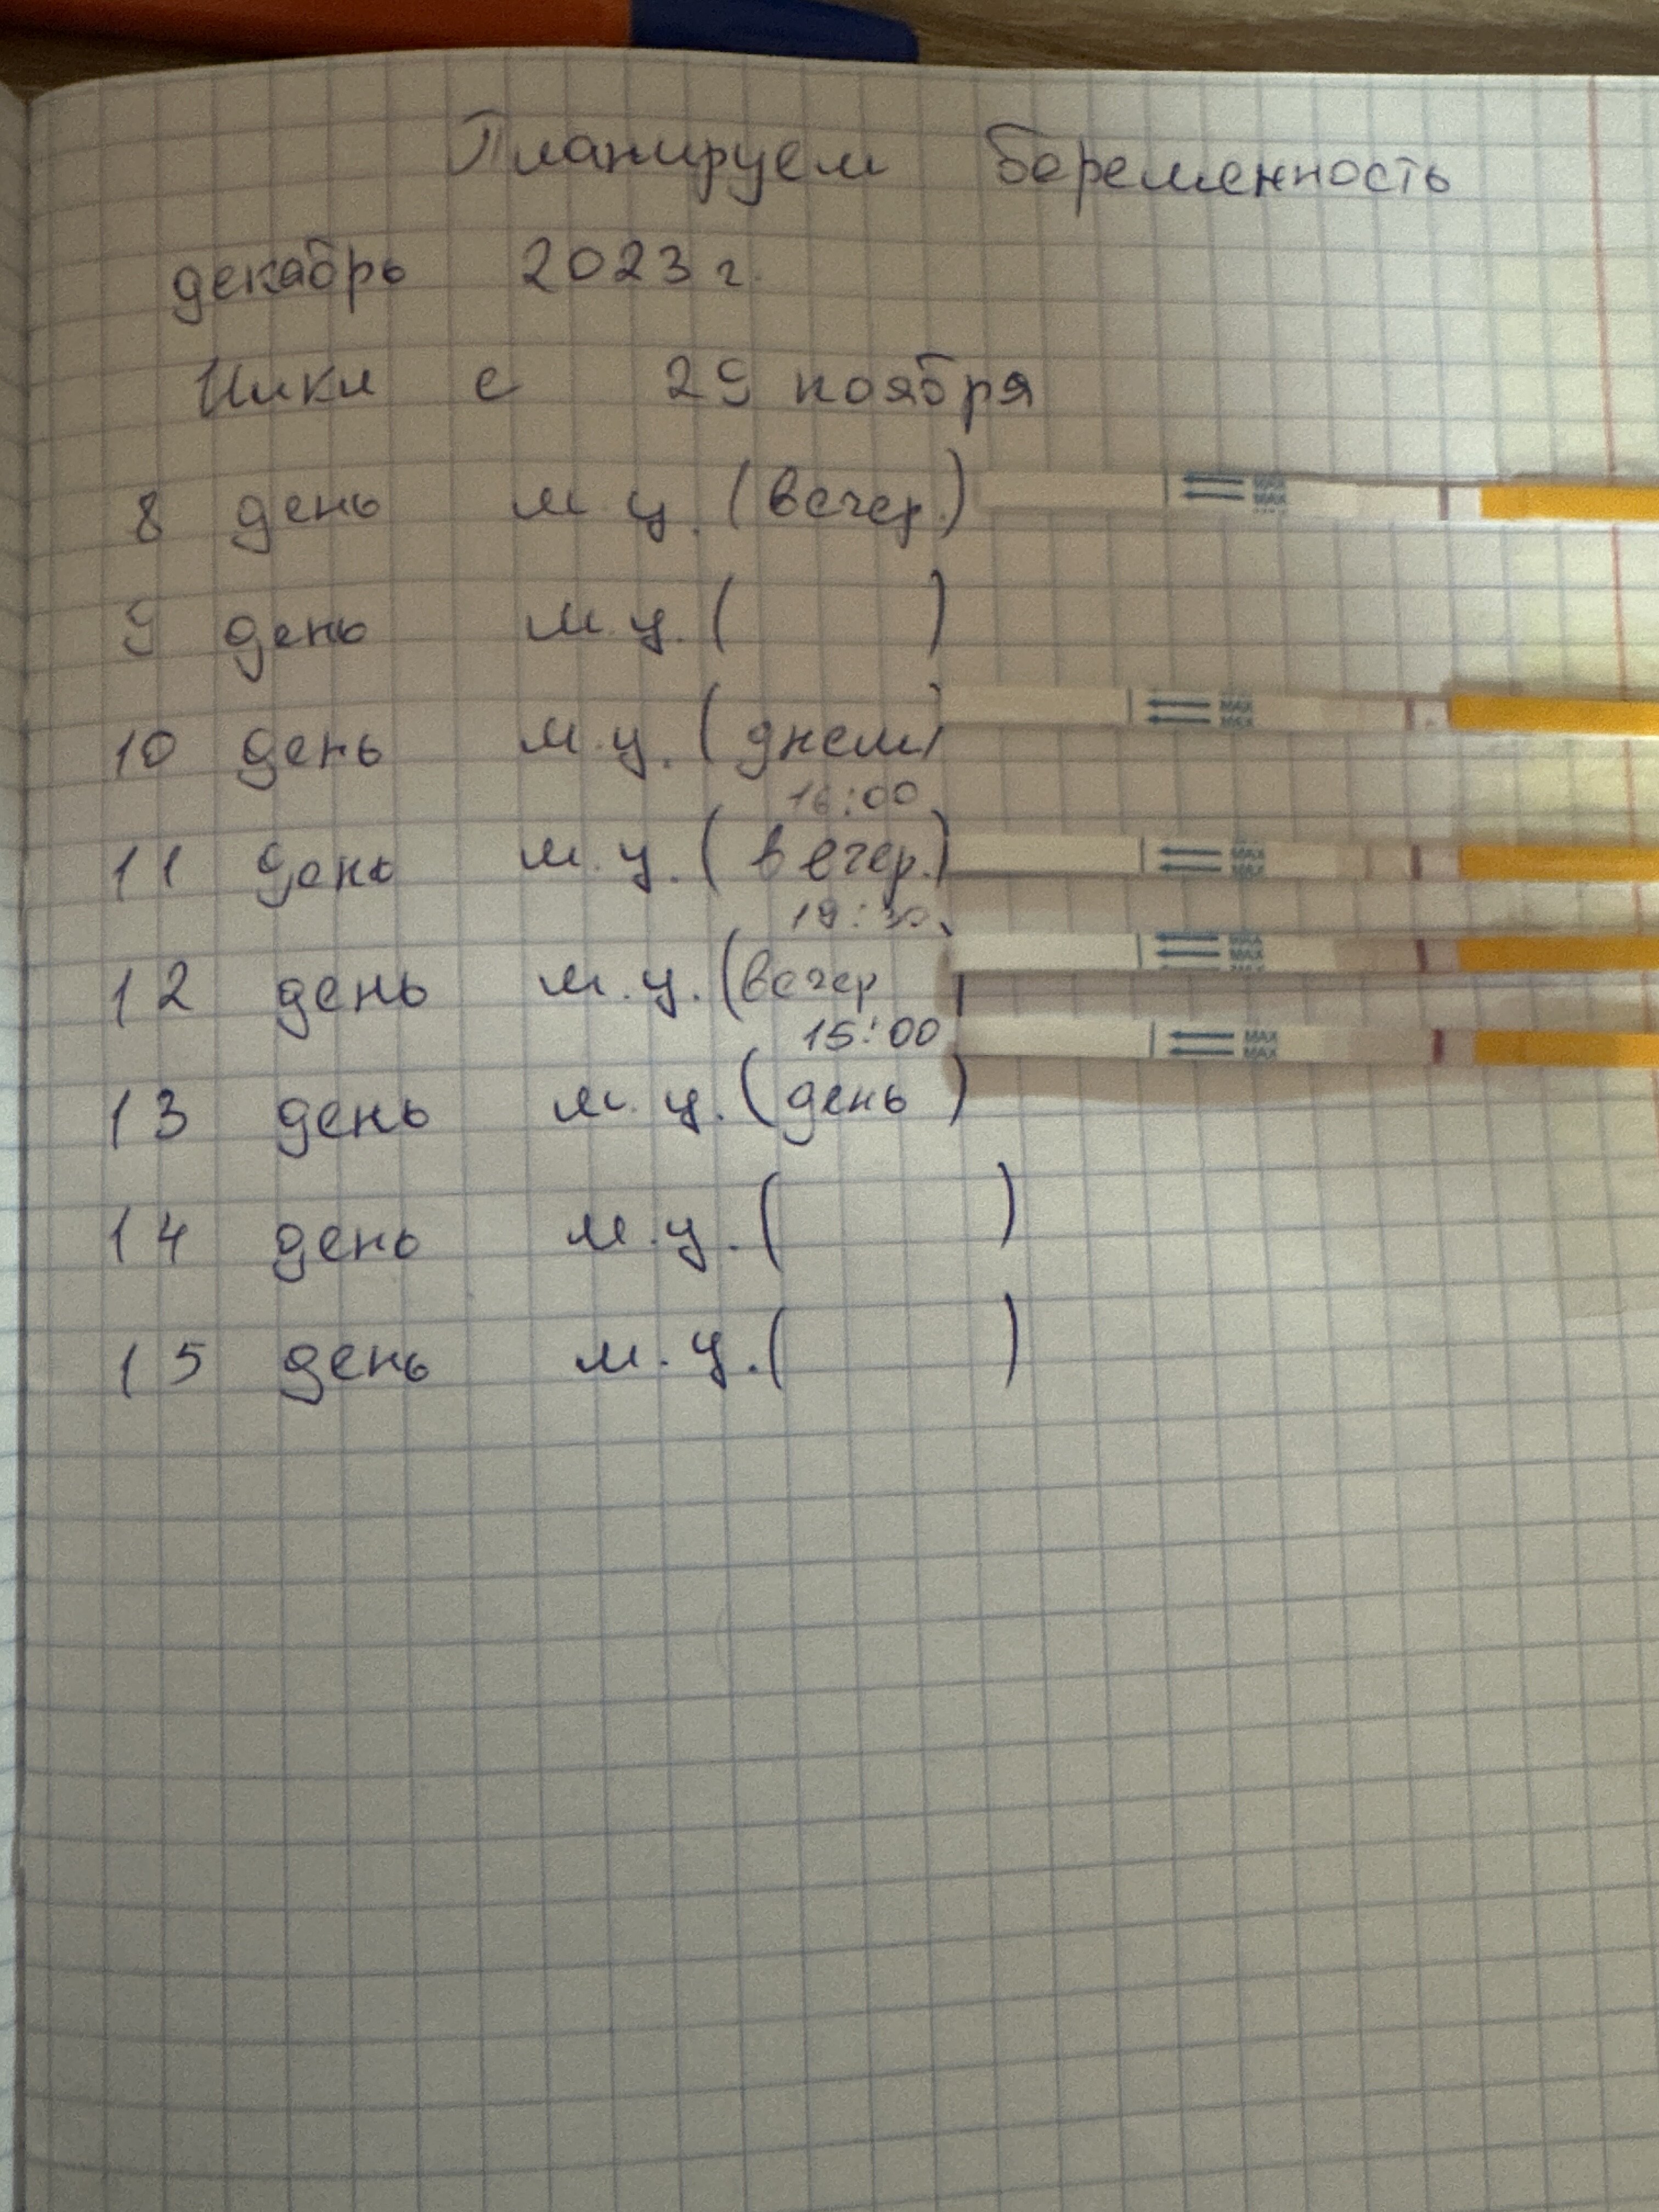 Планируем беременность
декабрь 2023 г.
Цикл с 29 ноября
8 день м.ц. (вечер.) MAX MAX
9 день м.ц. ( )
10 день м.ц. (днем) MAX MAX
16:00
11 день м.ц. (вечер.) MAX MAX
19:30
12 день м.ц. (вечер MAX MAX
15:00 MAX MAX
13 день м.ц. (день)
14 день м.ц. ( )
15 день м.ц. ( )